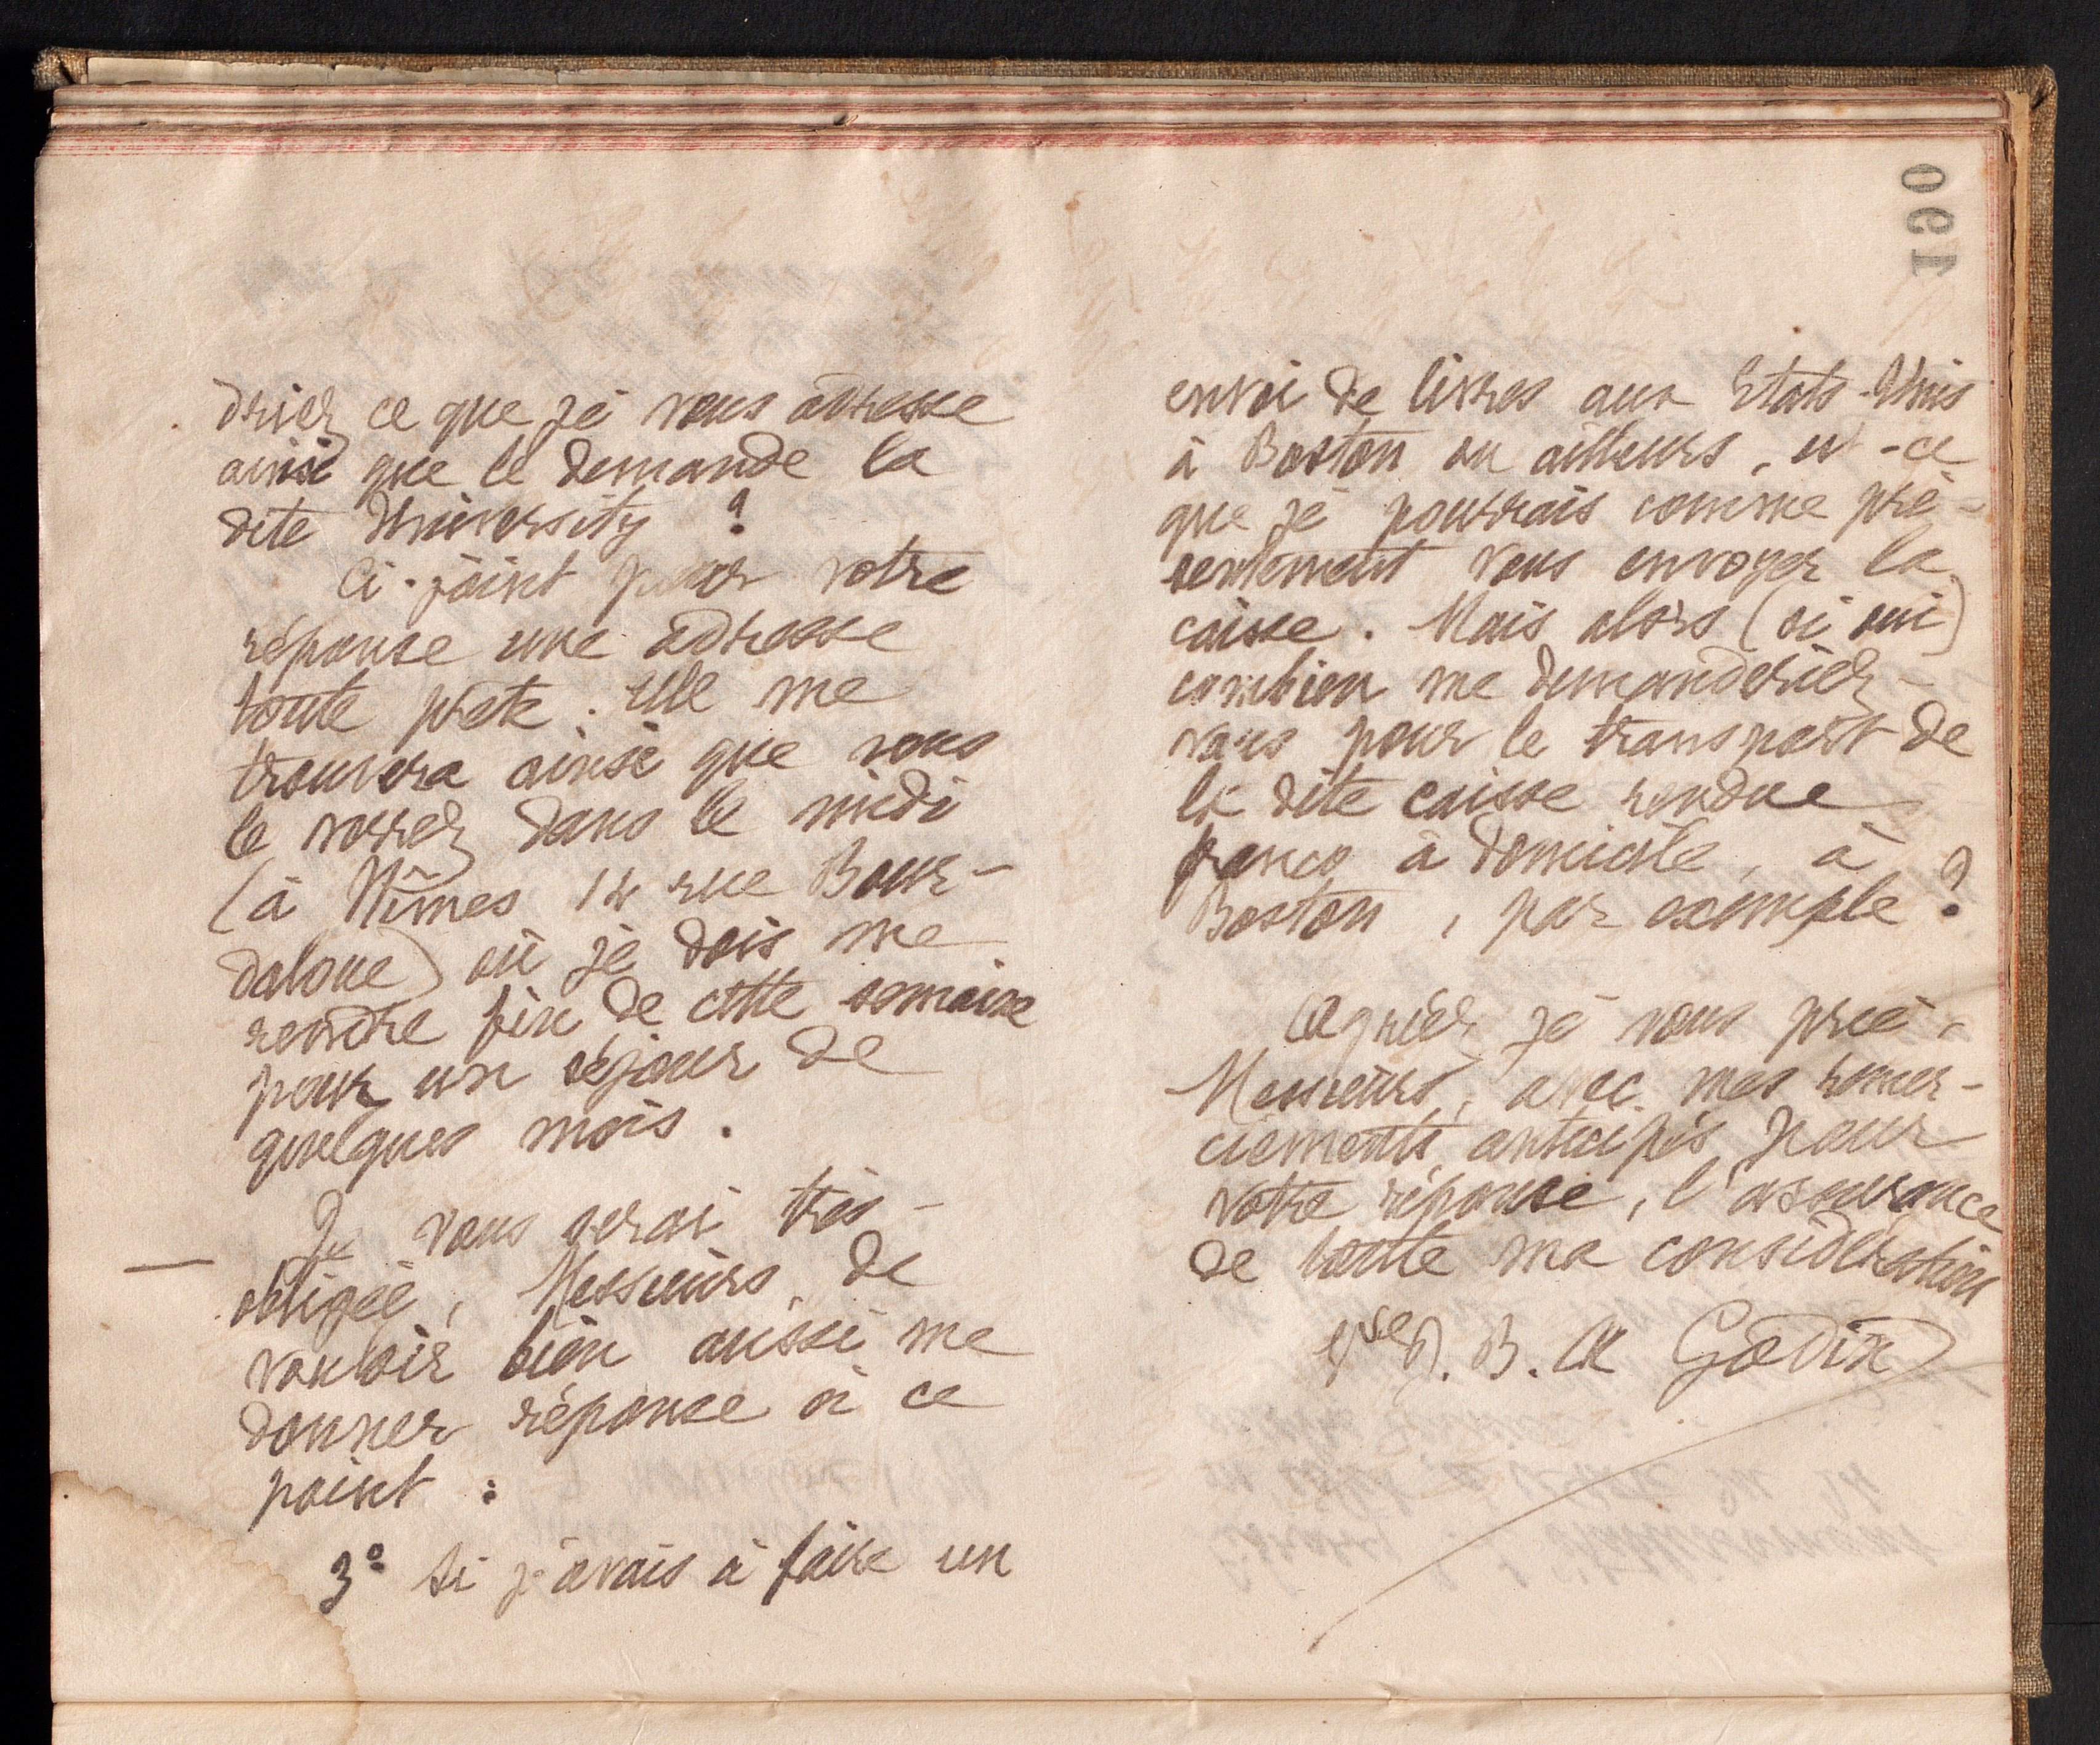 driez ce que je vous adresse
ainsi que le demande la
dite University ?
Ci-joint pour votre
réponse une adresse
toute prête. Elle me
trouvera ainsi que vous
le verrez dans le midi
(à Nîmes 14 rue Bour-
daloue) où je dois me
rendre fin de cette semaine
pour un séjour de
quelques mois.
Je vous serai très-
obligée, Messieurs, de
vouloir bien aussi me
donner réponse à ce
point :
3° Si j'avais à faire un
190
envoi de livres aux Etats-Unis
à Boston ou ailleurs, est-ce
que je pourrais comme pré-
sentement vous envoyer la
caisse. Mais alors (si oui)
combien me demanderiez-
vous pour le transport de
la dite caisse rendue
franco à domicile, à
Boston, par exemple ?
Agréez, je vous prie,
Messieurs, avec mes remer-
ciements anticipés pour
votre réponse, l'assurance
de toute ma considération
Vve J. B. A. Godin